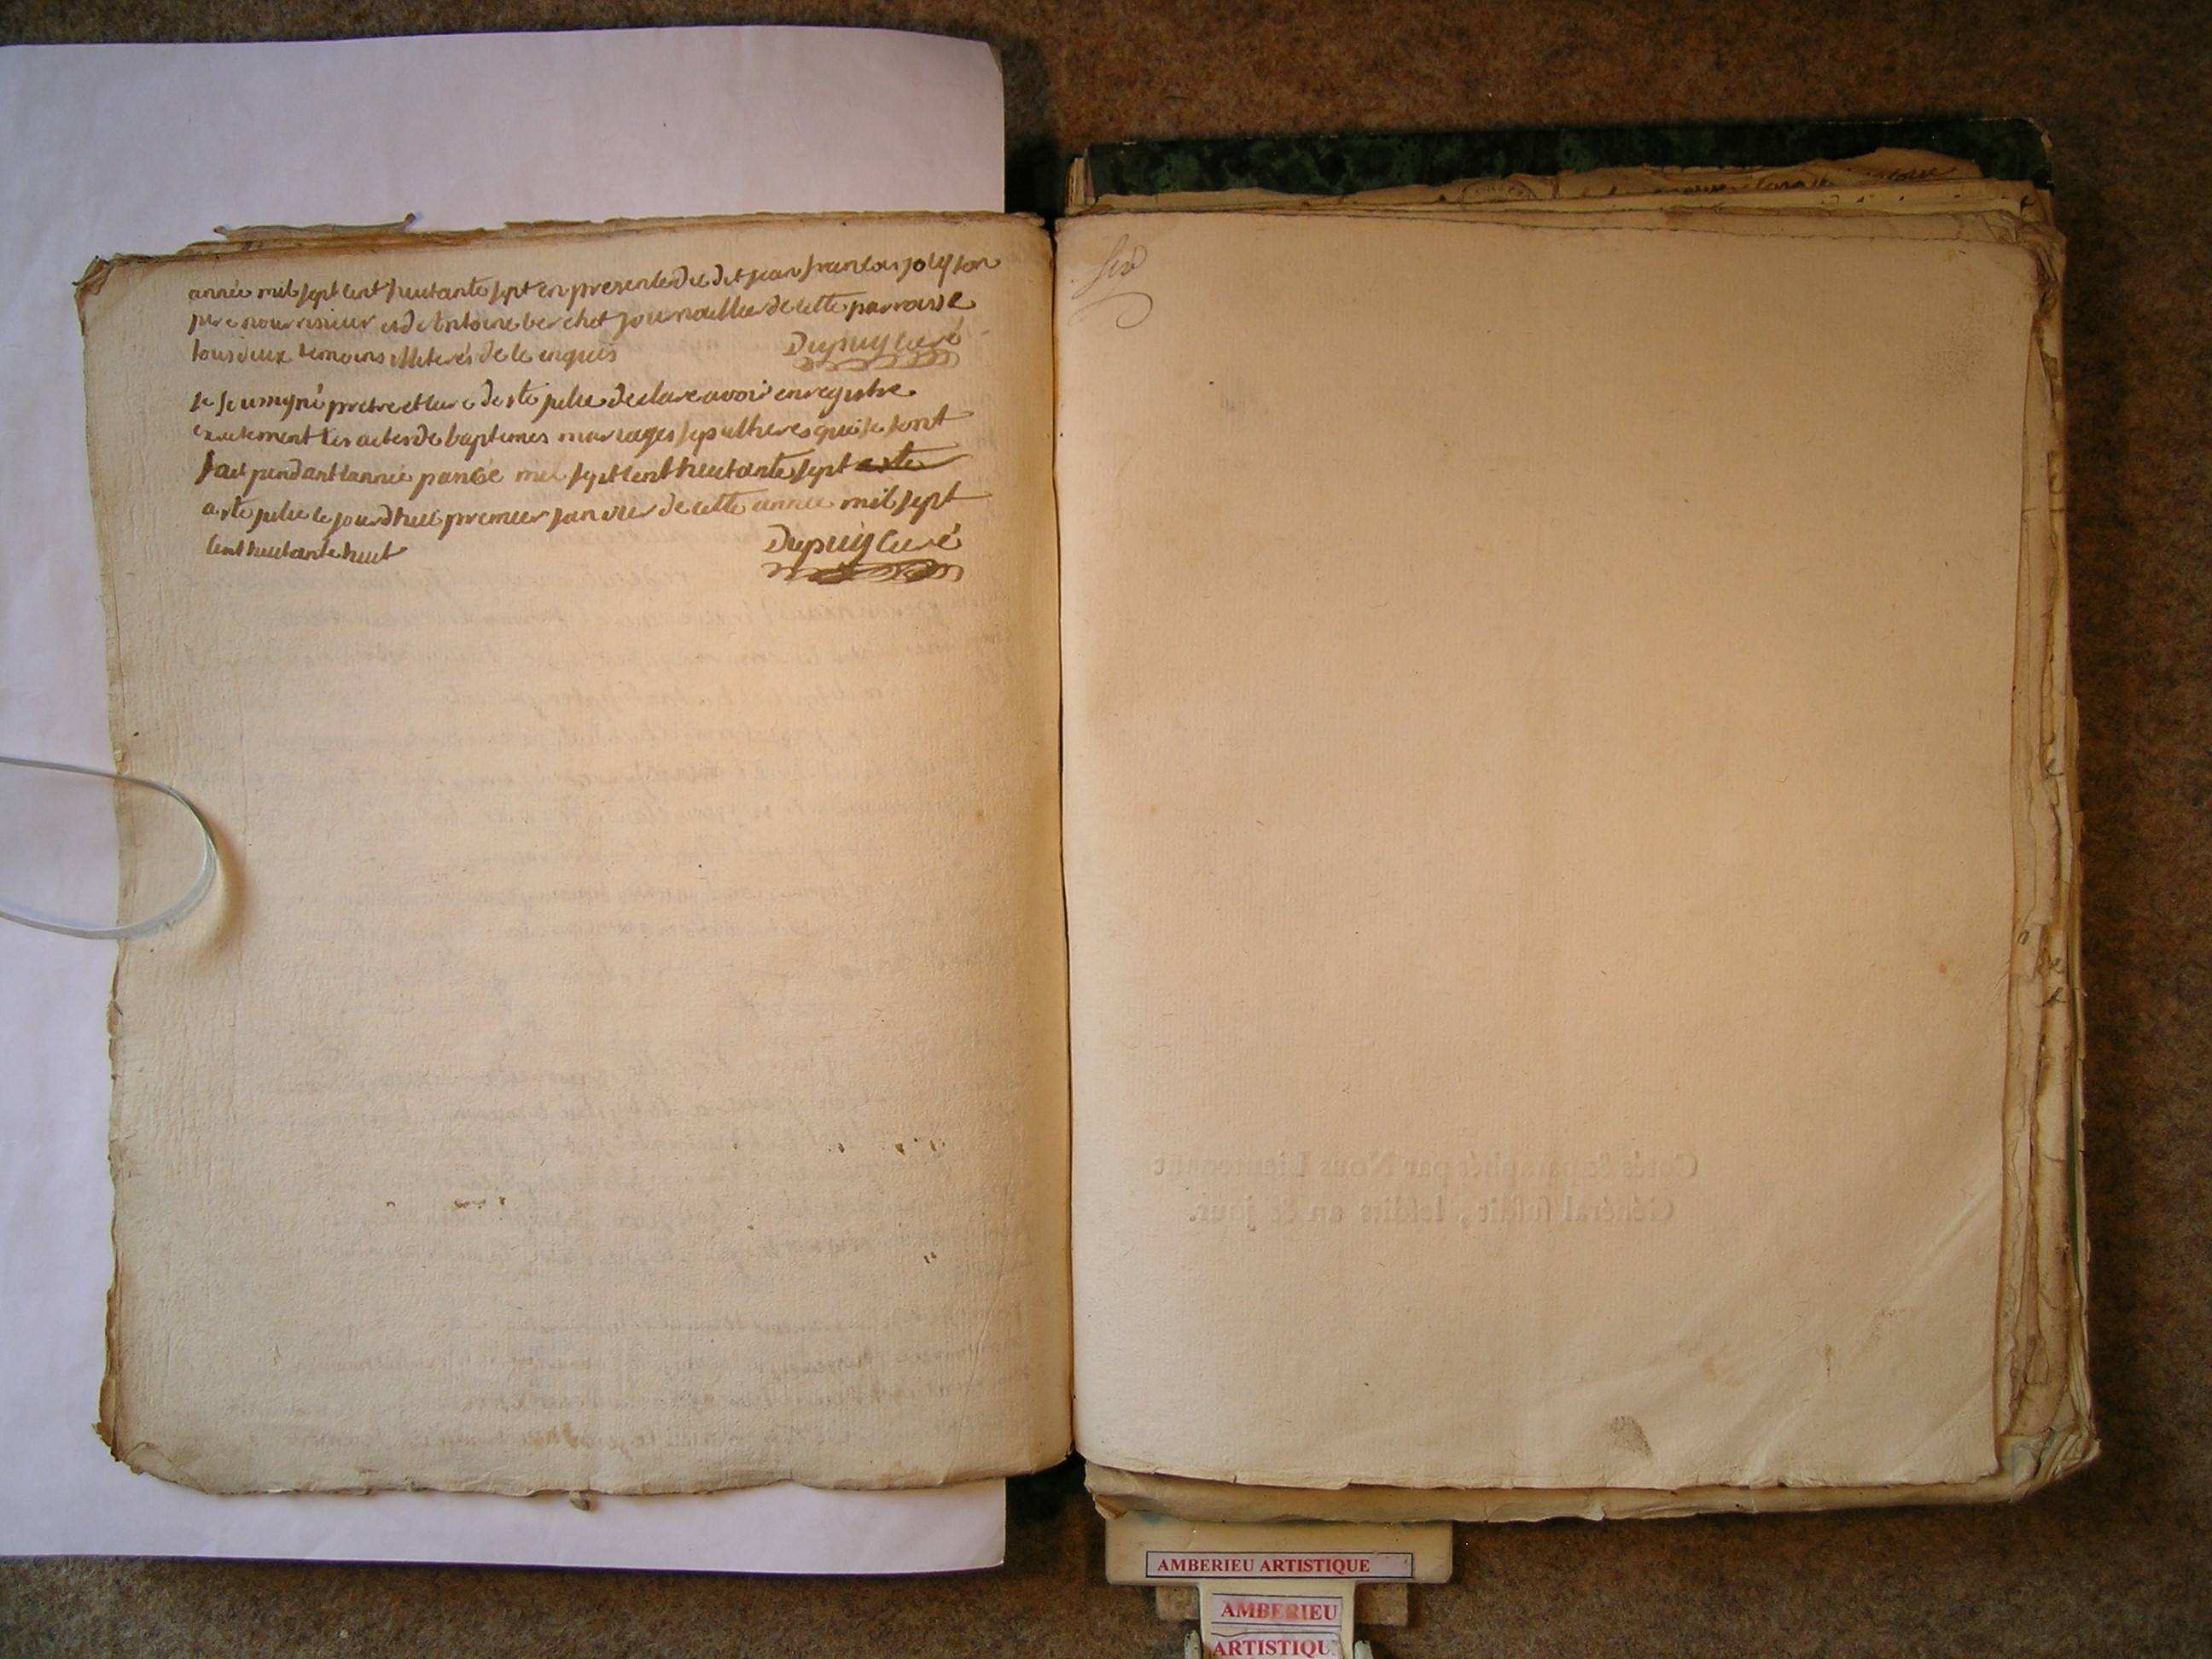 année mil sept cent huitante sept en presence du dit jean francois joly son
pere nourisieur et de Entoine berchet journallier de cette parroisse
tous deux temoins illiterés de ce enquis
Dupuy curé
je sousigné pretre et curé de ste julie declare avoir enregistre
exactement les actes de baptemes mariages sepultures qui se sont
fait pendant lannée pansée mil sept cent huitante sept
a ste julie ce jourdhui premier janvier de cette année mil sept
cent huitante huit
Dupuy curé
Cotés & paraphé par Nous Lieutenant
Général susdit, lesdits an & jour.
AMBERIEU ARTISTIQUE
AMBERIEU
ARTISTIQU